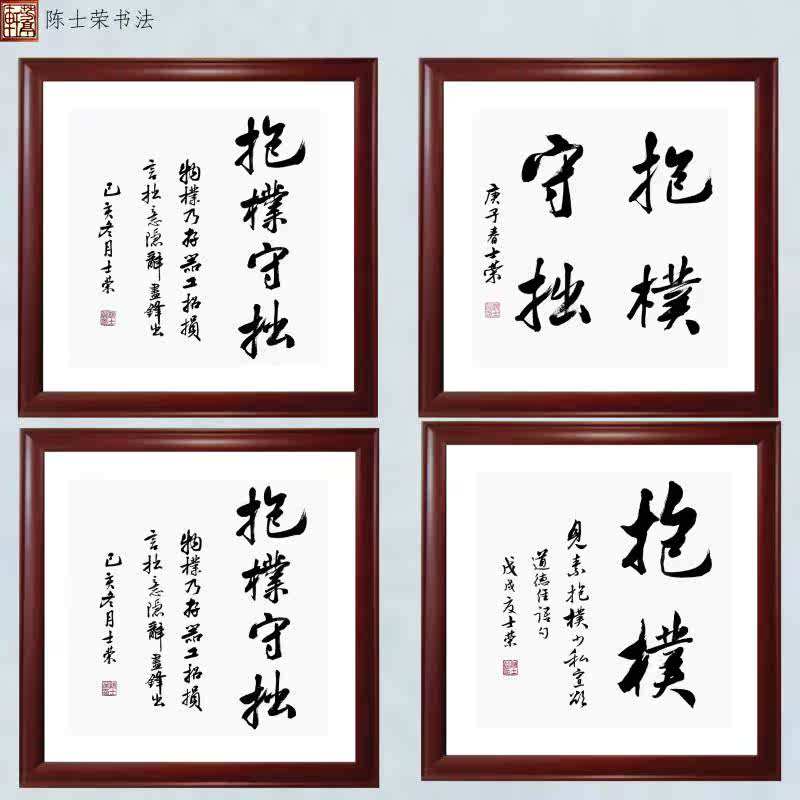 陈士荣书法
抱樸守拙
物樸乃存器工招損
言拙意隱辭盡鋒出
己亥冬月士荣
抱樸
守拙
庚子春士荣
抱樸守拙
物樸乃存器工招損
言拙意隱辭盡鋒出
己亥冬月士荣
抱樸
見素抱樸少私寡欲
道德經語句
戊戌夏士荣